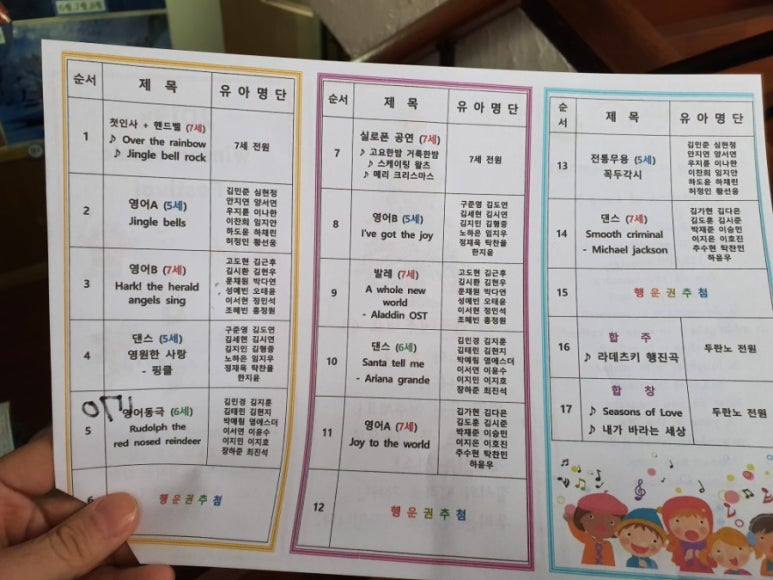 순서
제 목
유 아 명 단
1
첫인사 + 핸드벨 (7세)
♪ Over the rainbow
♪ Jingle bell rock
7세 전원
2
영어A (5세)
Jingle bells
김민준 심현정
안지연 양서연
우지훈 이나한
이찬희 임지안
하도윤 하채린
허정인 황선웅
3
영어B (7세)
Hark! the herald
angels sing
고도현 김근후
김시환 김현우
문채원 박다연
성예빈 오태윤
이서현 정민석
조혜빈 홍정원
4
댄스 (5세)
영원한 사랑
- 핑클
구준영 김도연
김세현 김시연
김지인 김형중
노하은 임지우
정재욱 탁찬율
한지윤
5
영어동극 (6세)
Rudolph the
red nosed reindeer
김민경 김지훈
김태린 김현지
박예림 염에스더
이서연 이윤수
이지민 이지호
장하준 최진석
6
행 운 권 추 첨
순서
제 목
유 아 명 단
7
실로폰 공연 (7세)
♪ 고요한밤 거룩한밤
♪ 스케이팅 왈츠
♪ 메리 크리스마스
7세 전원
8
영어B (5세)
I've got the joy
구준영 김도연
김세현 김시연
김지인 김형중
노하은 임지우
정재욱 탁찬율
한지윤
9
발레 (7세)
A whole new
world
- Aladdin OST
고도현 김근후
김시환 김현우
문채원 박다연
성예빈 오태윤
이서현 정민석
조혜빈 홍정원
10
댄스 (6세)
Santa tell me
- Ariana grande
김민경 김지훈
김태린 김현지
박예림 염에스더
이서연 이윤수
이지민 이지호
장하준 최진석
11
영어A (7세)
Joy to the world
김가현 김다은
김도훈 김시준
박재준 이승민
이지은 이호진
주수현 탁찬민
하윤우
12
행 운 권 추 첨
순
서
제 목
유 아 명 단
13
전통무용 (5세)
꼭두각시
김민준 심현정
안지연 양서연
우지훈 이나한
이찬희 임지안
하도윤 하채린
허정인 황선웅
14
댄스 (7세)
Smooth criminal
- Michael jackson
김가현 김다은
김도훈 김시준
박재준 이승민
이지은 이호진
주수현 탁찬민
하윤우
15
행 운 권 추 첨
16
합 주
♪ 라데츠키 행진곡
두란노 전원
17
합 창
♪ Seasons of Love
♪ 내가 바라는 세상
두란노 전원